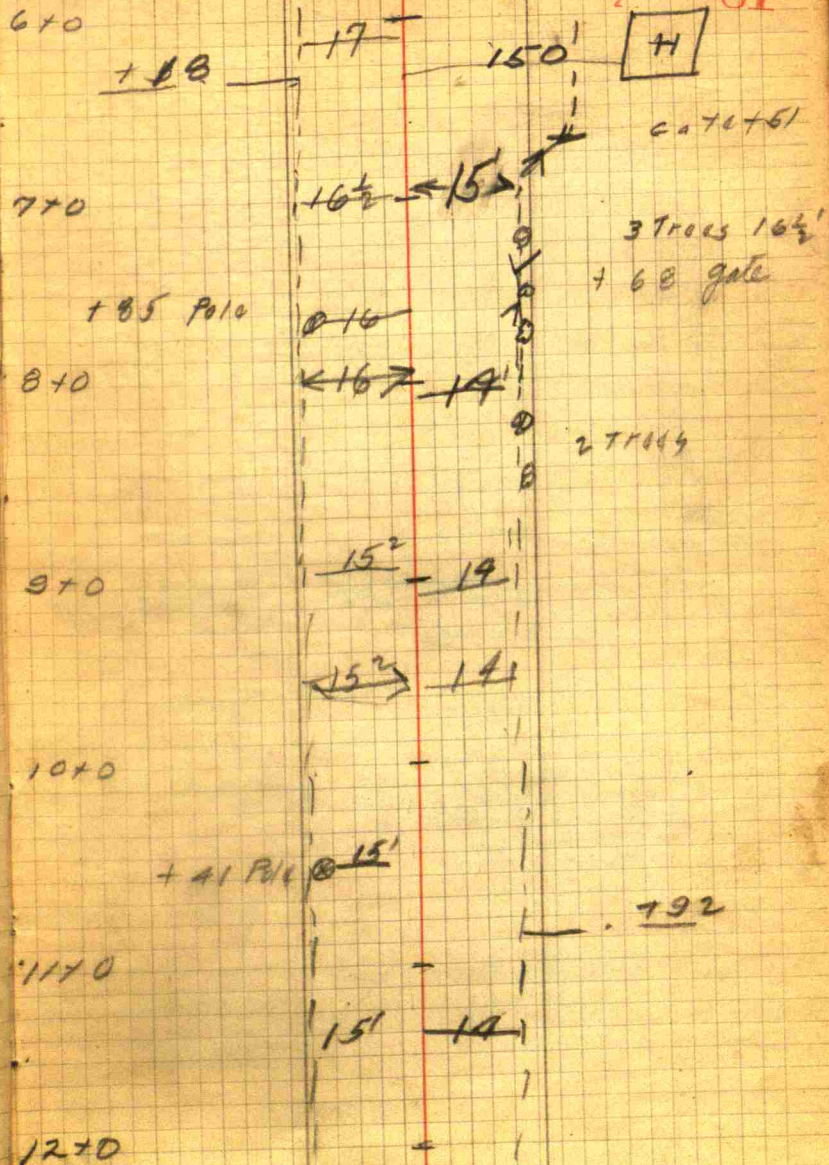 6+0 17 150' H
+18
Gate +51
7+0 16½ 15'
3 Trees 16½'
+68 gate
+85 Pole 16
8+0 16 14'
2 Trees
9+0 15² 14
15² 14
10+0
+41 Pole 15'
+92
11+0
15' 14
12+0